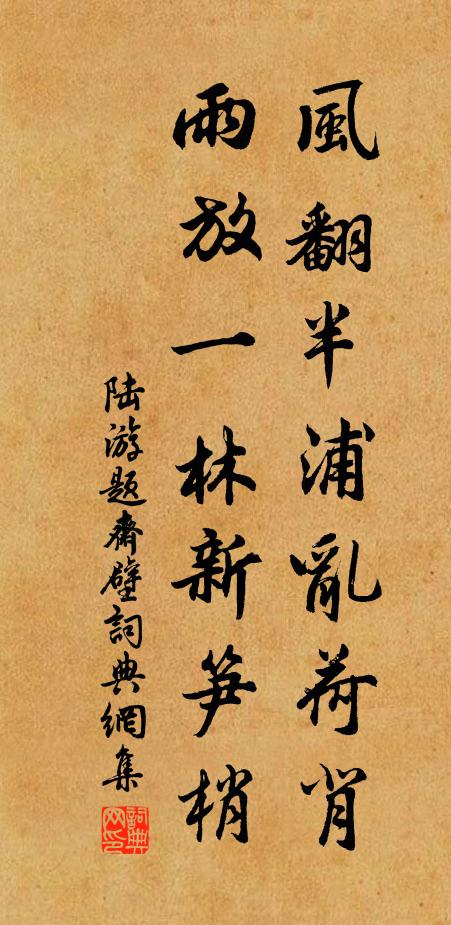 風翻半浦亂荷背
雨放一林新笋梢
陆游题齋壁詞典網集
詞典网印